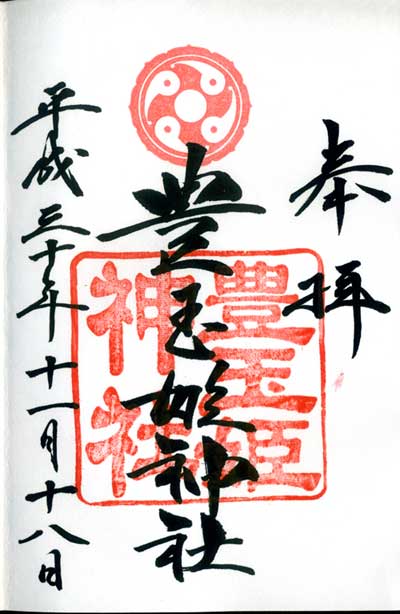 奉拝
豊玉姫神社
豊玉姫
神社
平成三十年十一月十八日